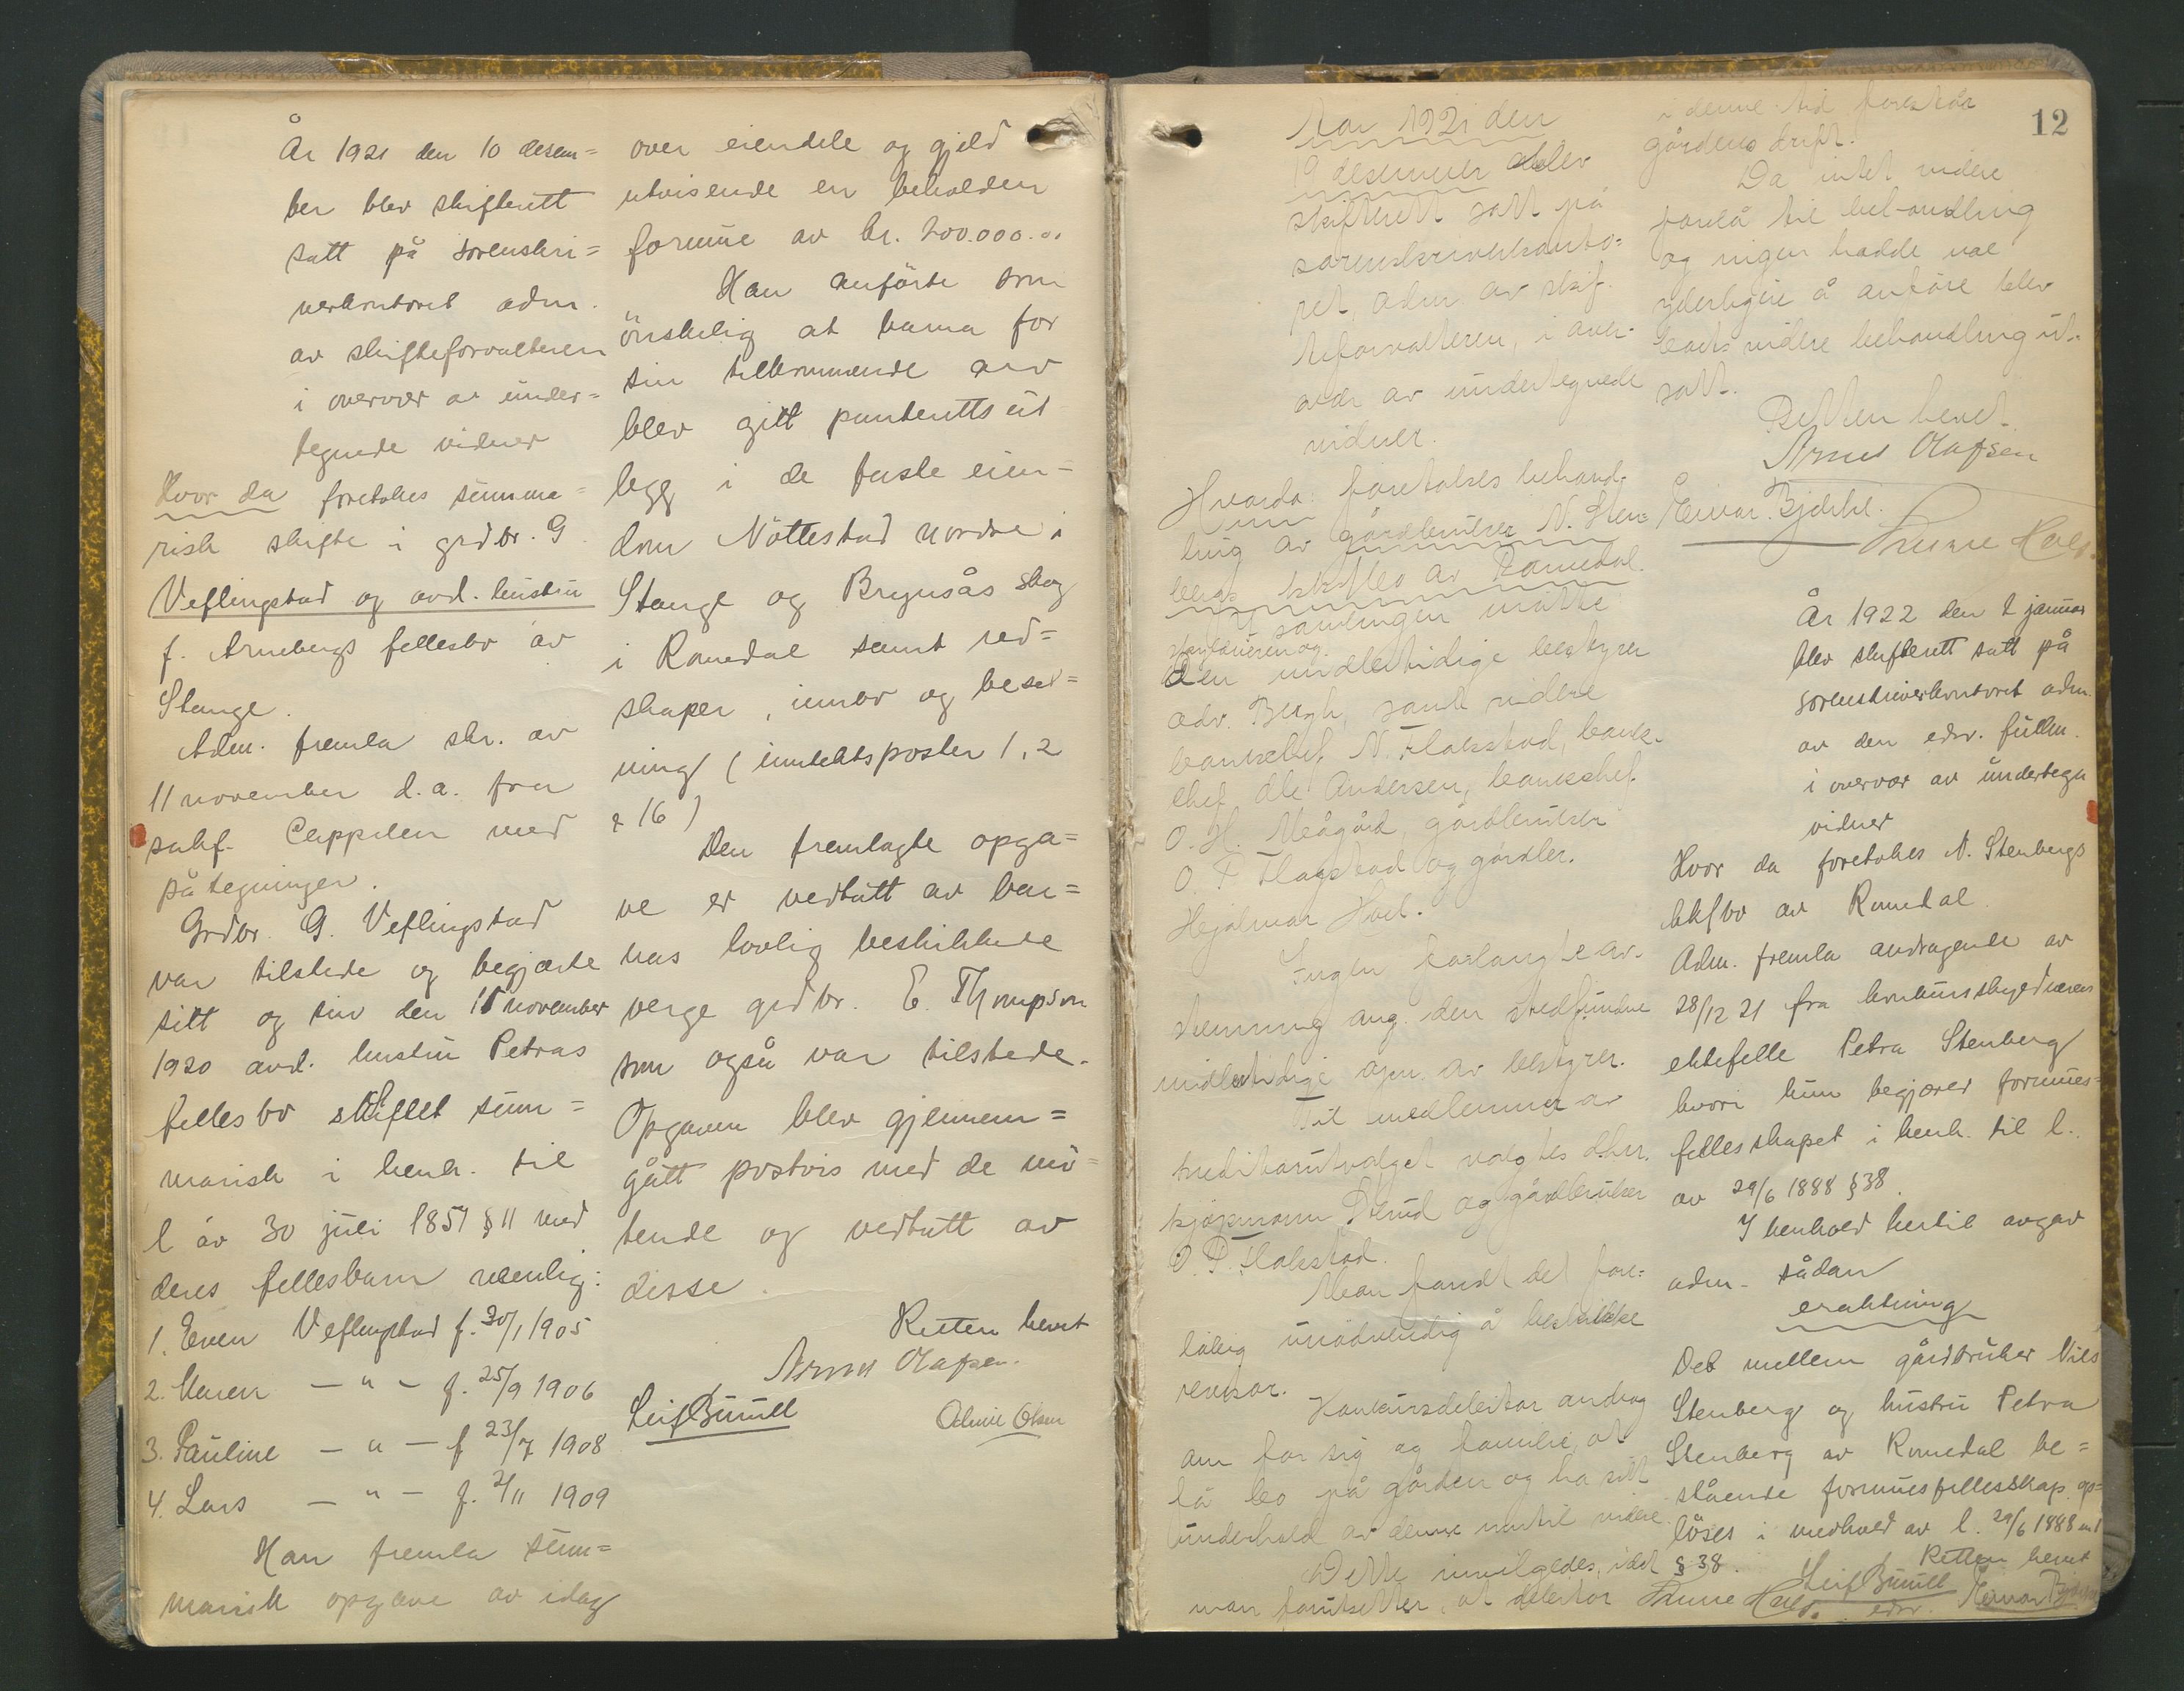 År 1921 den 10 desem=
ber blev skifterett
satt på sorenskri=
verkontoret adm.
av skifteforvalteren
i overvær av under=
tegnede vidner
Hvor da foretokes summa=
risk skifte i grdbr. G
Veflingstad og avd. hustru
f. Arnebergs fellesbo av
Stange.
Adm. fremla skr. av
11 november d.a. fra
sakf. Cappelen med
påtegninger.
Grdbr. G. Veflingstad
var tilstede og begjærte
sitt og sin den 15 november
1920 avd. hustru Petras
fellesbo skiftet sum=
marisk i henh. til
l av 30 juli 1851 § 11 med
deres fellesbarn nemlig:
1. Even Veflingstad f. 30/1 1905
2. Maren — " — f. 25/9 1906
3. Pauline — " — f 23/7 1908
4. Lars — " — f. 2/11 1909
Han fremla sum=
marisk opgave av idag
over eiendele og gjeld
utvisende en beholden
formue av kr. 200.000.00
Han anførte som
ønskelig at barna for
sin tilkommende arv
blev gitt panterettsut
legg i de faste eien=
dom Nøttestad nordre i
Stange og Brynsås skog
i Romedal samt red=
skaper, innbo og beset=
ning (inntektsposter 1, 2
& 16)
Den fremlagte opga=
ve er vedtatt av bar=
nas lovlig beskikkede
verge grdbr. E. Thompson
som også var tilstede.
Opgaven blev gjennem=
gått postvis med de mø=
tende og vedtatt av
disse.
Retten hevet
Arnus Olafsen.
Leif Buull
Odmie Olsen
12
Aar 1921 den
19 desember blev
skifterett satt på
sorenskriverkonto=
ret, adm av skif.
teforvalteren, i over-
vær av undertegnede
vidner.
Hvorda: foretokes behand-
ling av gårdbruker N. Sten=
bergs kkfbo av Romedal.
I samlingen møtte
skyldneren og
den midlertidige bestyrer
adv. Bergh, samt videre
bankchef N. Flakstad, bank-
chef Ole Andersen, bankchef
O. H. Meågård, gårdbruker
O. P. Flagstad og gårdbr.
Hjalmar Hoel.
Ingen forlangte av-
stemning ang. den stedfundne
midlertidige opn. av bestyrer.
Til medlemmer av
kreditorutvalget valgtes d.hrr.
kjøpmann Strud og gårdbruker
O. P. Flakstad.
Man fandt det fore=
løbig unødvendig å beskikke
revisor.
Konkursdebitor androg
om for sig og familie, at
få bo på gården og ha sitt
underhold av denne inntil videre.
Dette innvilgedes, idet
man forutsetter, at debitor
i denne tid forestår
gårdens drift.
Da intet videre
forelå til behandling
og ingen hadde noe
yderligere å anføre blev
boets videre behandling ut-
satt.
Retten hevet.
Arnus Olafsen
Einar Bjerke.
Signe Hals.
År 1922 den 2 januar
blev skifterett satt på
sorenskriverkontoret adm.
av den edsv. fullm.
i overvær av undertegn
vidner
Hvor da foretokes N. Stenbergs
kkfbo av Romedal.
Adm. fremla andragende av
28/12 21 fra konkursskyldnerens
ektefelle Petra Stenberg
hvori hun begjærer formues=
fellesskapet i henh. til l.
av 29/6 1888 § 38.
I henhold hertil avgav
adm. sådan
eraktning
Det mellem gårdbruker Nils
Stenberg og hustru Petra
Stenberg av Romedal be=
stående formuesfellesskap op=
løses i medhold av l. 29/6 1888
§ 38.
Retten hevet
Leif Buull
edsv.
Signe Hals.